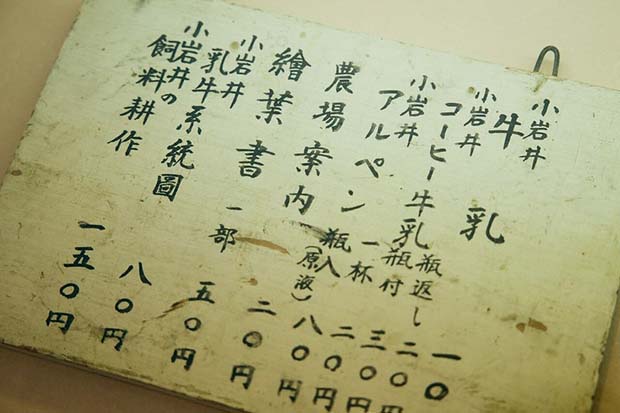 小岩井
牛乳 瓶返し 一〇
瓶付 二〇円
小岩井
コーヒー牛乳 三〇円
小岩井
アルペン 一杯 二〇円
瓶入（原液） 八〇円
農場案内 二〇円
繪葉書 一部 五〇円
小岩井
乳牛系統圖 八〇円
小岩井の
飼料耕作 一五〇円